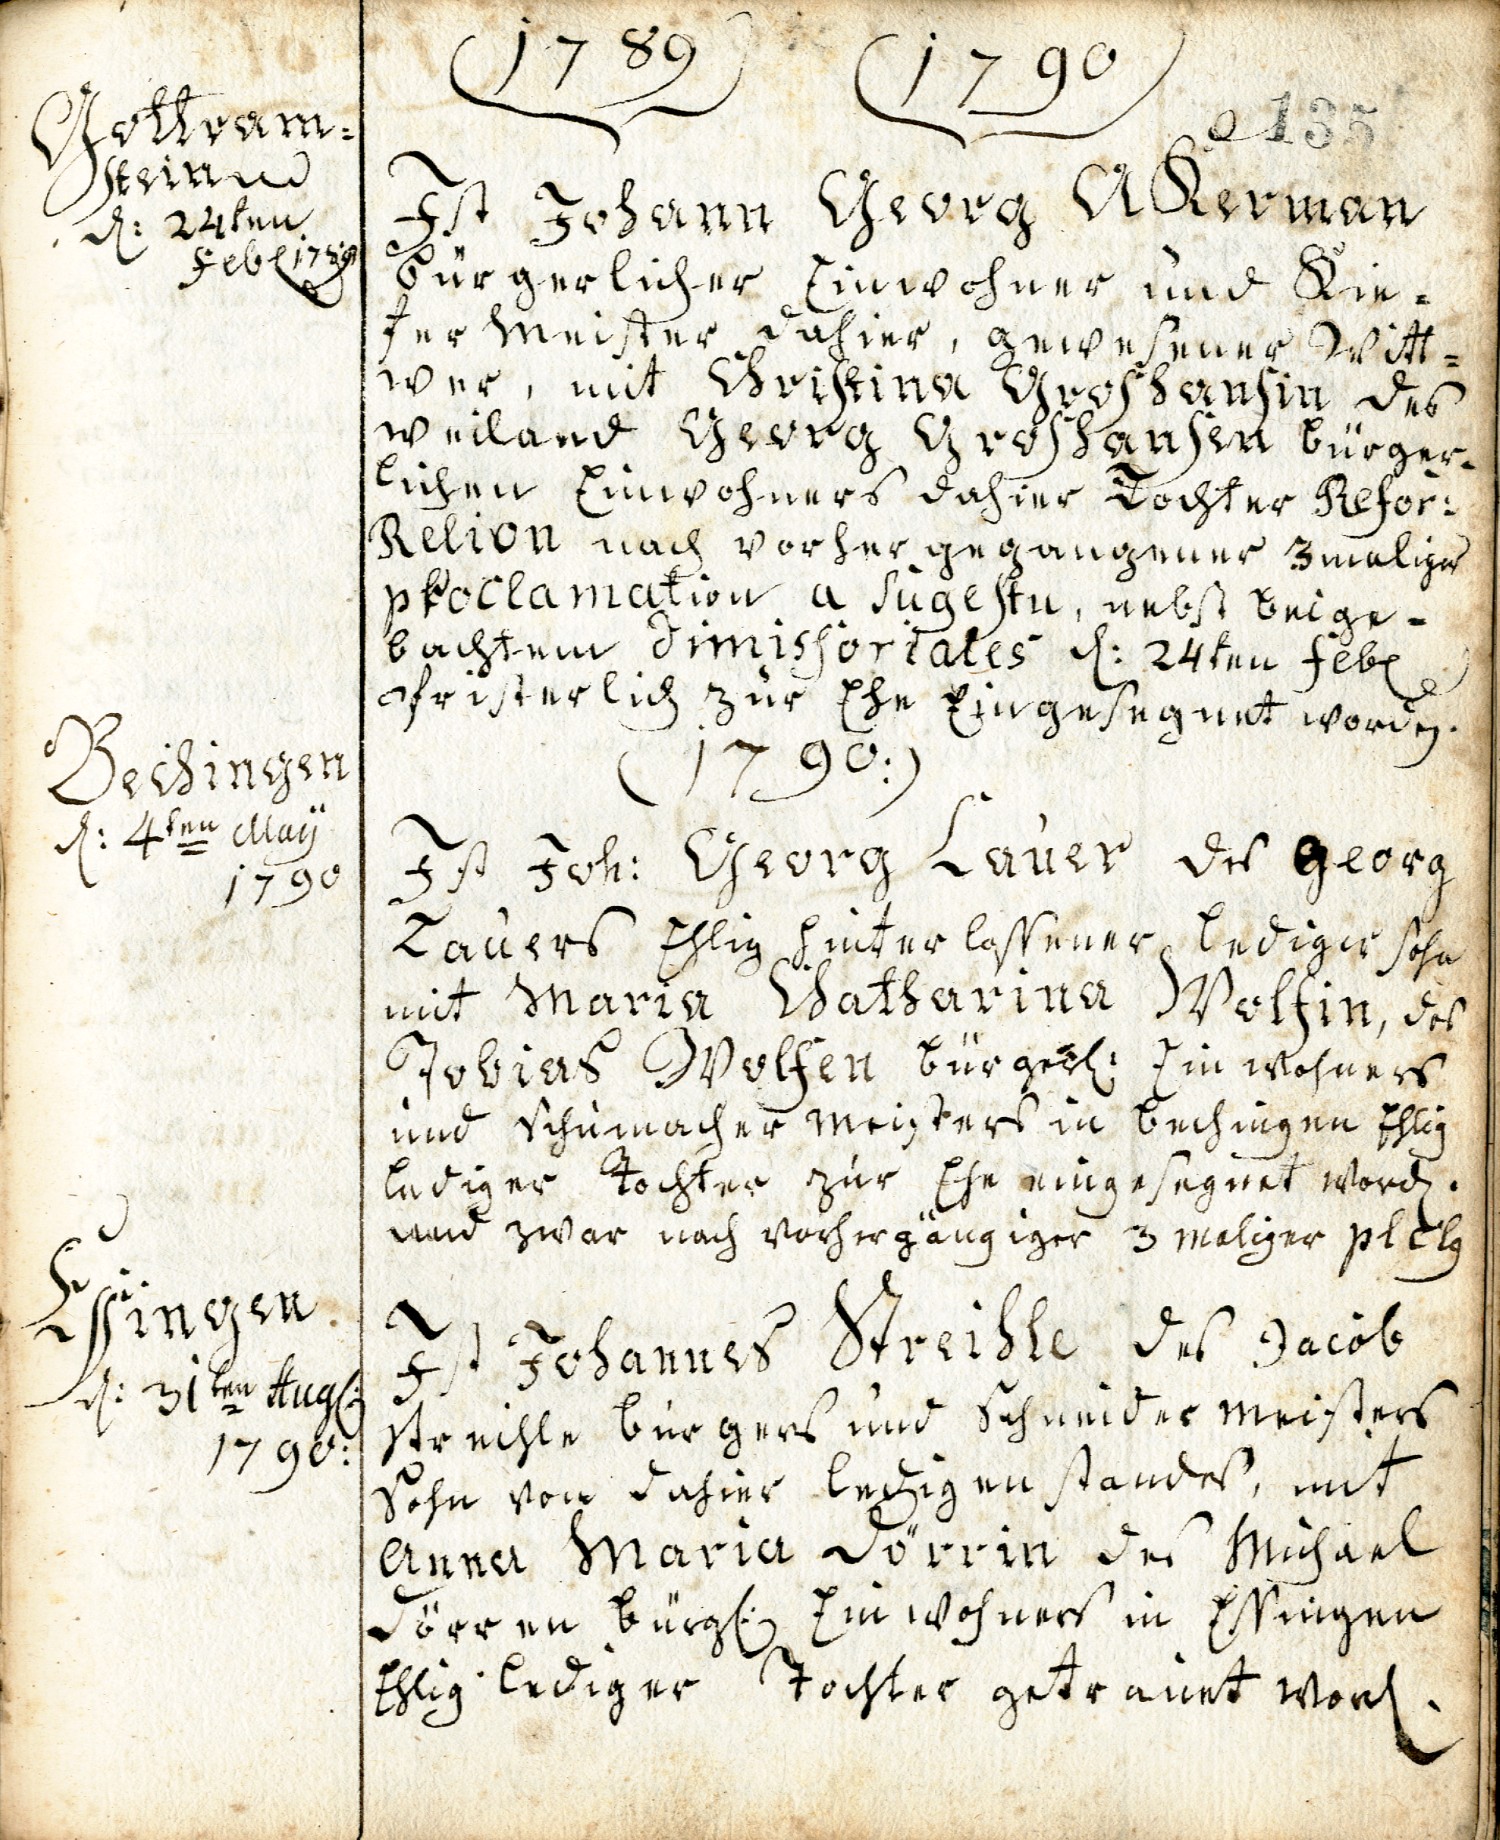 1789 1790
135
Gottram-
stein
d: 24ten
Feb 1789
Ist Johann Georg AKerman
bürgerlicher Einwohner und Kie-
fer Meister dahier, gewesener Witt-
wer, mit Christina Groshansin des
weiland Georg Groshansen bürger-
lichen Einwohners dahier Tochter Refor:
Relion nach vorher gegangener 3maliger
proclamation a sugestu, nebst beige-
bachtem Dimissoriales d: 24ten Feb
christerlich zur Ehe Eingesegnet worden.
(1790:)
Bechingen
d: 4ten May
1790
Ist Joh: Georg Lauer des Georg
Lauers Ehlig hinterlassener lediger sohn
mit Maria Chatharina Wolfin, des
Tobias Wolfen bürgerl: Einwohners
und Schumacher Meisters in bechingen Ehlig
lediger Tochter zur Ehe eingesegnet word.
und zwar nach vorhergängiger 3 maliger
Essingen
d: 31ten Aug:
1790:
Ist Johannes Streihle des Jacob
streihle burgers und Schneider meisters
Sohn von dahier ledigen standes, mit
Anna Maria Dörrin des Michael
Dörren bürgl: Einwohners in Essingen
Ehlig lediger Tochter getrauet word.